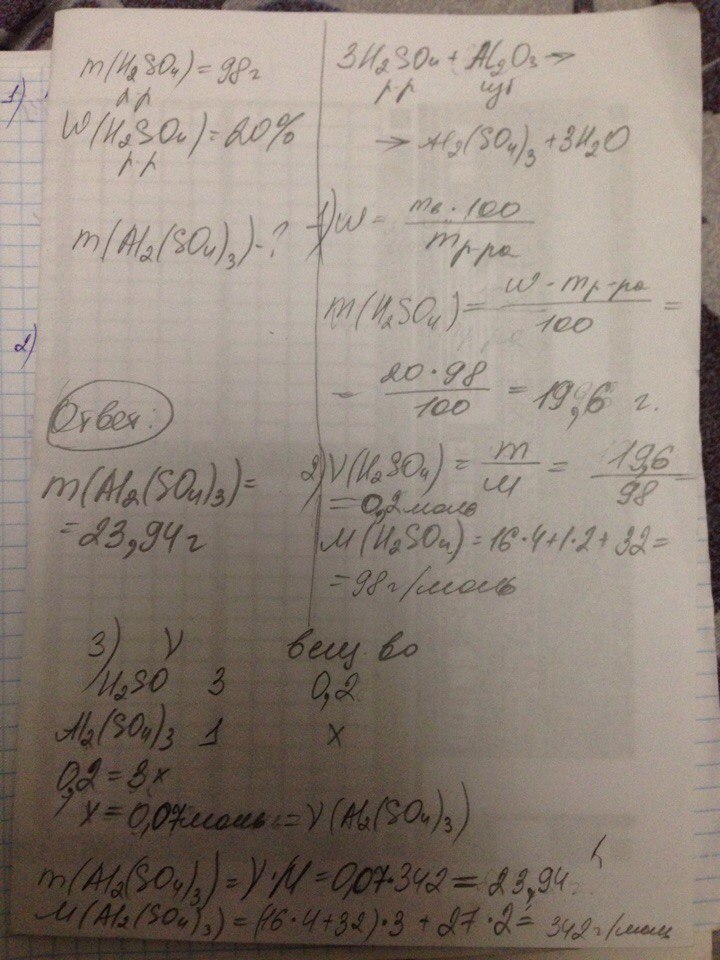 1)
m(H2SO4) = 98г
р р
W(H2SO4) = 20%
р р
m(Al2(SO4)3) - ?
2)
Ответ:
m(Al2(SO4)3) =
= 23,94 г
3H2SO4 + Al2O3 →
р р изб
→ Al2(SO4)3 + 3H2O
1) W = mв · 100 / mр-ра
m(H2SO4) = W · mр-ра / 100 =
= 20 · 98 / 100 = 19,6 г.
2) V(H2SO4) = m / M = 19,6 / 98
= 0,2 моль
M(H2SO4) = 16·4+1·2+32=
= 98 г/моль
3) V вещ. во
H2SO 3 0,2
Al2(SO4)3 1 x
0,2 = 3x
x = 0,07 моль = V(Al2(SO4)3)
m(Al2(SO4)3) = V·M = 0,07·342 = 23,94 г.
M(Al2(SO4)3) = (16·4+32)·3 + 27·2 = 342 г/моль